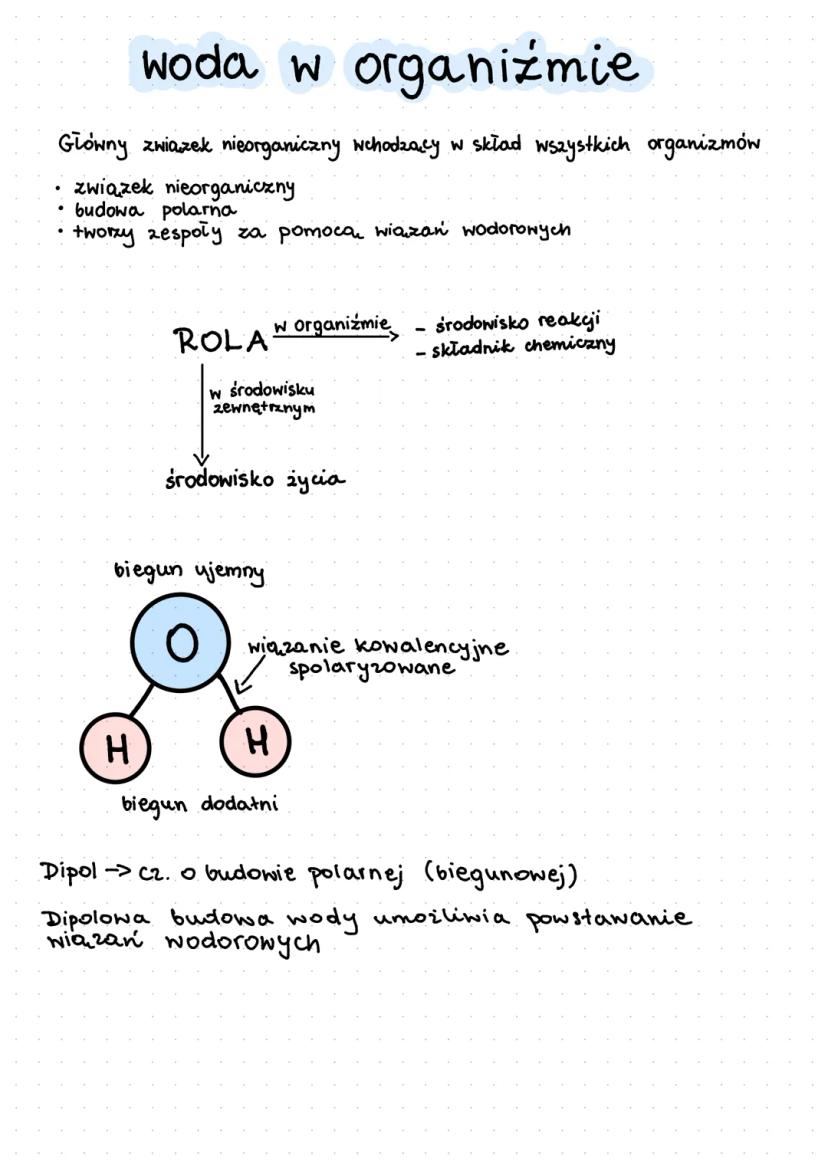 woda w organiźmie
Główny związek nieorganiczny wchodzący w skład wszystkich organizmów
• związek nieorganiczny
• budowa polarna
• tworzy zespoły za pomocą wiązań wodorowych
ROLA w organiźmie → - środowisko reakcji
- składnik chemiczny
w środowisku
zewnętrznym
środowisko życia
biegun ujemny
O
wiązanie kowalencyjne
spolaryzowane
H H
biegun dodatni
Dipol -> cz. o budowie polarnej (biegunowej)
Dipolowa budowa wody umożliwia powstawanie
wiązań wodorowych